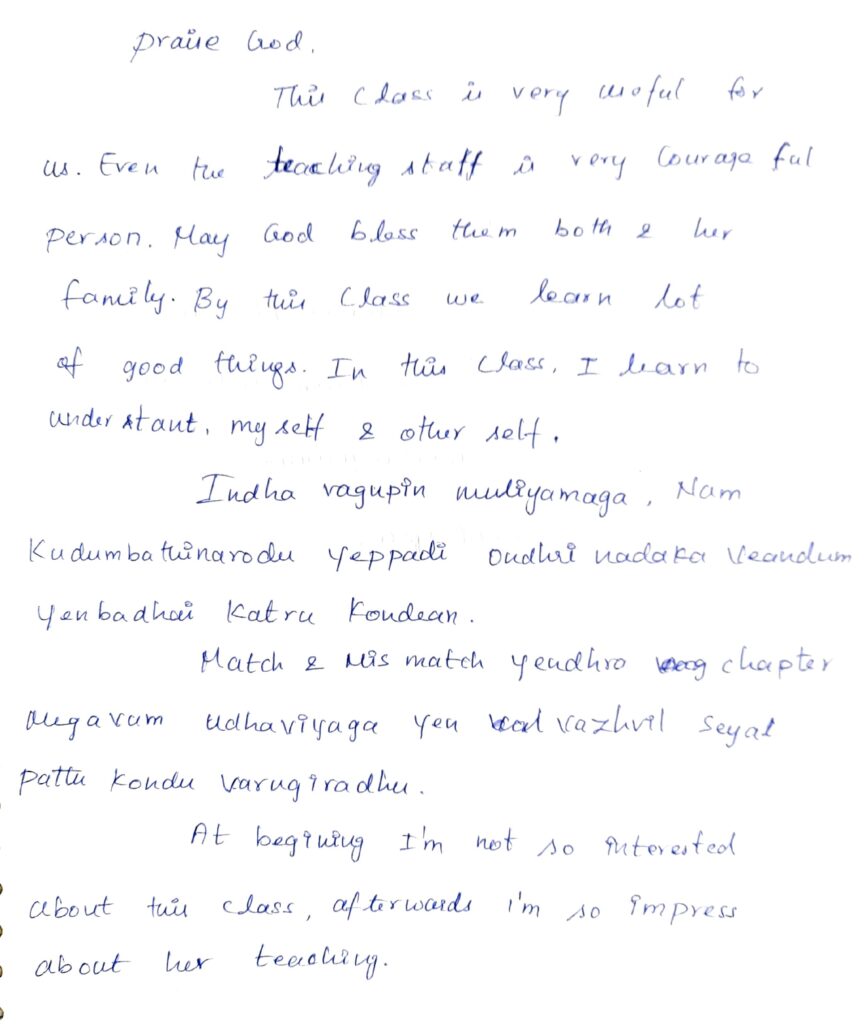 Praise God.
This class is very useful for
us. Even the teaching staff is very courage ful
person. May God bless them both & her
family. By this class we learn lot
of good things. In this class, I learn to
under stant, my self & other self.
Indha vagupin muliyamaga, Nam
Kudumbathinarodu yeppadi oudhri nadaka veandum
yenbadhai katru kondean.
Match & Mis match yendhro chapter
megavum udhaviyaga yen vazhvil seyal
pattu kondu varugiradhu.
At begining I'm not so interested
about this class, afterwards I'm so impress
about her teaching.